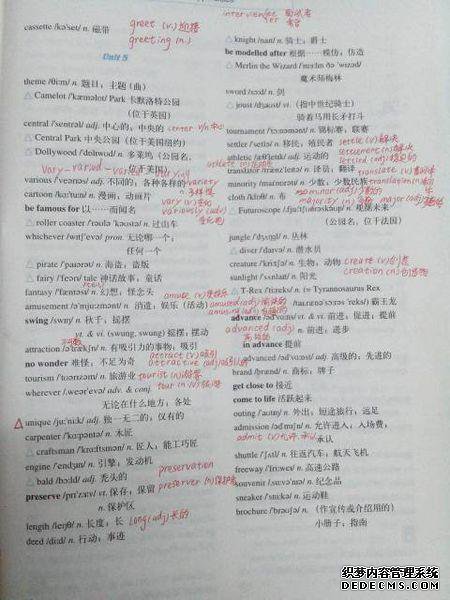 greet (v.) 迎接
cassette /kə'set/ n. 磁带
greeting (n.)
Unit 5
theme /θi:m/ n. 题目；主题 (曲)
△ Camelot /'kæmələt/ Park 卡默洛特公园
(位于英国)
central /'sentrəl/ adj. 中心的；中央的 center
△ Central Park 中央公园 (位于美国纽约)
△ Dollywood /'dɒlɪwʊd/ n. 多莱坞 (公园名，
位于美国)
vary - varied - varied varying
various /'veərɪəs/ adj. 不同的；各种各样的
variety
cartoon /kɑ:'tu:n/ n. 漫画；动画片
vary (v)
be famous for 以……而闻名
variously (adv)
△ roller coaster /'rəʊlə 'kəʊstə/ n. 过山车
whichever /wɪtʃ'evə/ pron. 无论哪一个；
任何一个
△ pirate /'paɪərət/ n. 海盗；盗版
△ fairy /'feərɪ/ tale 神话故事，童话
fantasy /'fæntəsɪ/ n. 幻想；怪念头
amusement /ə'mju:zmənt/ n. 消遣；娱乐 (活动)
amuse (v)
amused (adj)
amusing (adj)
swing /swɪŋ/ n. 秋千；摇摆
vt. & vi. (swung, swung) 摇摆；摆动
attraction /ə'trækʃn/ n. 有吸引力的事物；吸引
attract (v) 吸引
no wonder 难怪；不足为奇 attractive (adj)
tourism /'tʊərɪzəm/ n. 旅游业 tourist (n) 游客
wherever /weər'evə/ adv. & conj. tour (n.v)
无论在什么地方；各处
△ unique /ju:'ni:k/ adj. 独一无二的；仅有的
carpenter /'kɑ:pəntə/ n. 木匠
△ craftsman /'krɑ:ftsmən/ n. 匠人；能工巧匠
engine /'endʒɪn/ n. 引擎；发动机
△ bald /bɔ:ld/ adj. 秃头的 preservation
preserve /prɪ'zɜ:v/ vt. 保存；保留 preserver (n) 保护者
n. 保护区
length /leŋθ/ n. 长度；长 long (adj) 长的
deed /di:d/ n. 行动；事迹
interviewer
△ knight /naɪt/ n. 骑士；爵士
be modelled after 根据……模仿；仿造
△ Merlin the Wizard /'mɜ:lɪn ðə 'wɪzəd/
魔术师梅林
sword /sɔ:d/ n. 剑
△ joust /dʒaʊst/ vi. (指中世纪骑士)
骑着马用长矛打斗
tournament /'tʊənəmənt/ n. 锦标赛；联赛
settler /'setlə/ n. 移民；殖民者 settle (v) 解决
settlement (n) 解决
athletic /æθ'letɪk/ adj. 运动的 settled (adj)
athlete
translator /træns'leɪtə/ n. 译员；翻译 translate (v)
minority /maɪ'nɒrətɪ/ n. 少数；少数民族 translation (n)
cloth /klɒθ/ n. 布
majority (n) 多数
△ Futuroscope /fju:'tjʊərəskəʊp/ n. 观测未来
(公园名，位于法国)
jungle /'dʒʌŋgl/ n. 丛林
△ diver /'daɪvə/ n. 潜水员
creature /'kri:tʃə/ n. 生物；动物 create (v) 创造
sunlight /'sʌnlaɪt/ n. 阳光 creation (n)
△ T-Rex /'ti:reks/ n. (= Tyrannosaurus Rex
/taɪ,rænə'sɔ:rəs 'reks/) 霸王龙
advance /əd'vɑ:ns/ vt. & vi. 前进；促进；提前
n. 前进；进步
advanced (adj)
in advance 提前
advanced /əd'vɑ:nst/ adj. 高级的；先进的
brand /brænd/ n. 商标；牌子
get close to 接近
come to life 活跃起来
outing /'aʊtɪŋ/ n. 外出；短途旅行；远足
admission /əd'mɪʃn/ n. 允许进入；入场费；
承认
admit (v) 允许，承认
shuttle /'ʃʌtl/ n. 往返汽车；航天飞机
freeway /'fri:weɪ/ n. 高速公路
souvenir /,su:və'nɪə/ n. 纪念品
sneaker /'sni:kə/ n. 运动鞋
brochure /'brəʊʃə/ n. (作宣传或介绍用的)
小册子；指南
织梦内容管理系统
DEDECMS.COM